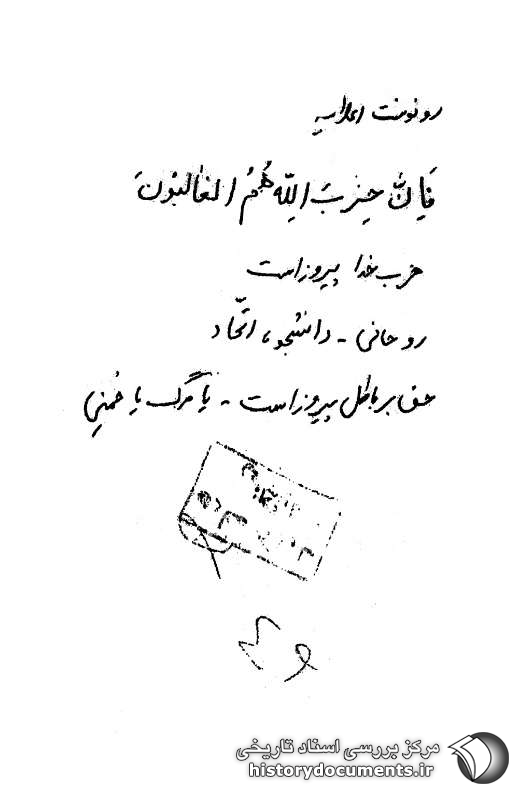 رونوشت اعلامیه
فَاِنَّ حِزبَ اللّهِ هُمُ الغالبُونَ
حزب خدا پیروز است
روحانی - دانشجو، اتّحاد
حق بر باطل پیروز است - یا مرگ یا خُمینی
مرکز بررسی اسناد تاریخی
historydocuments.ir